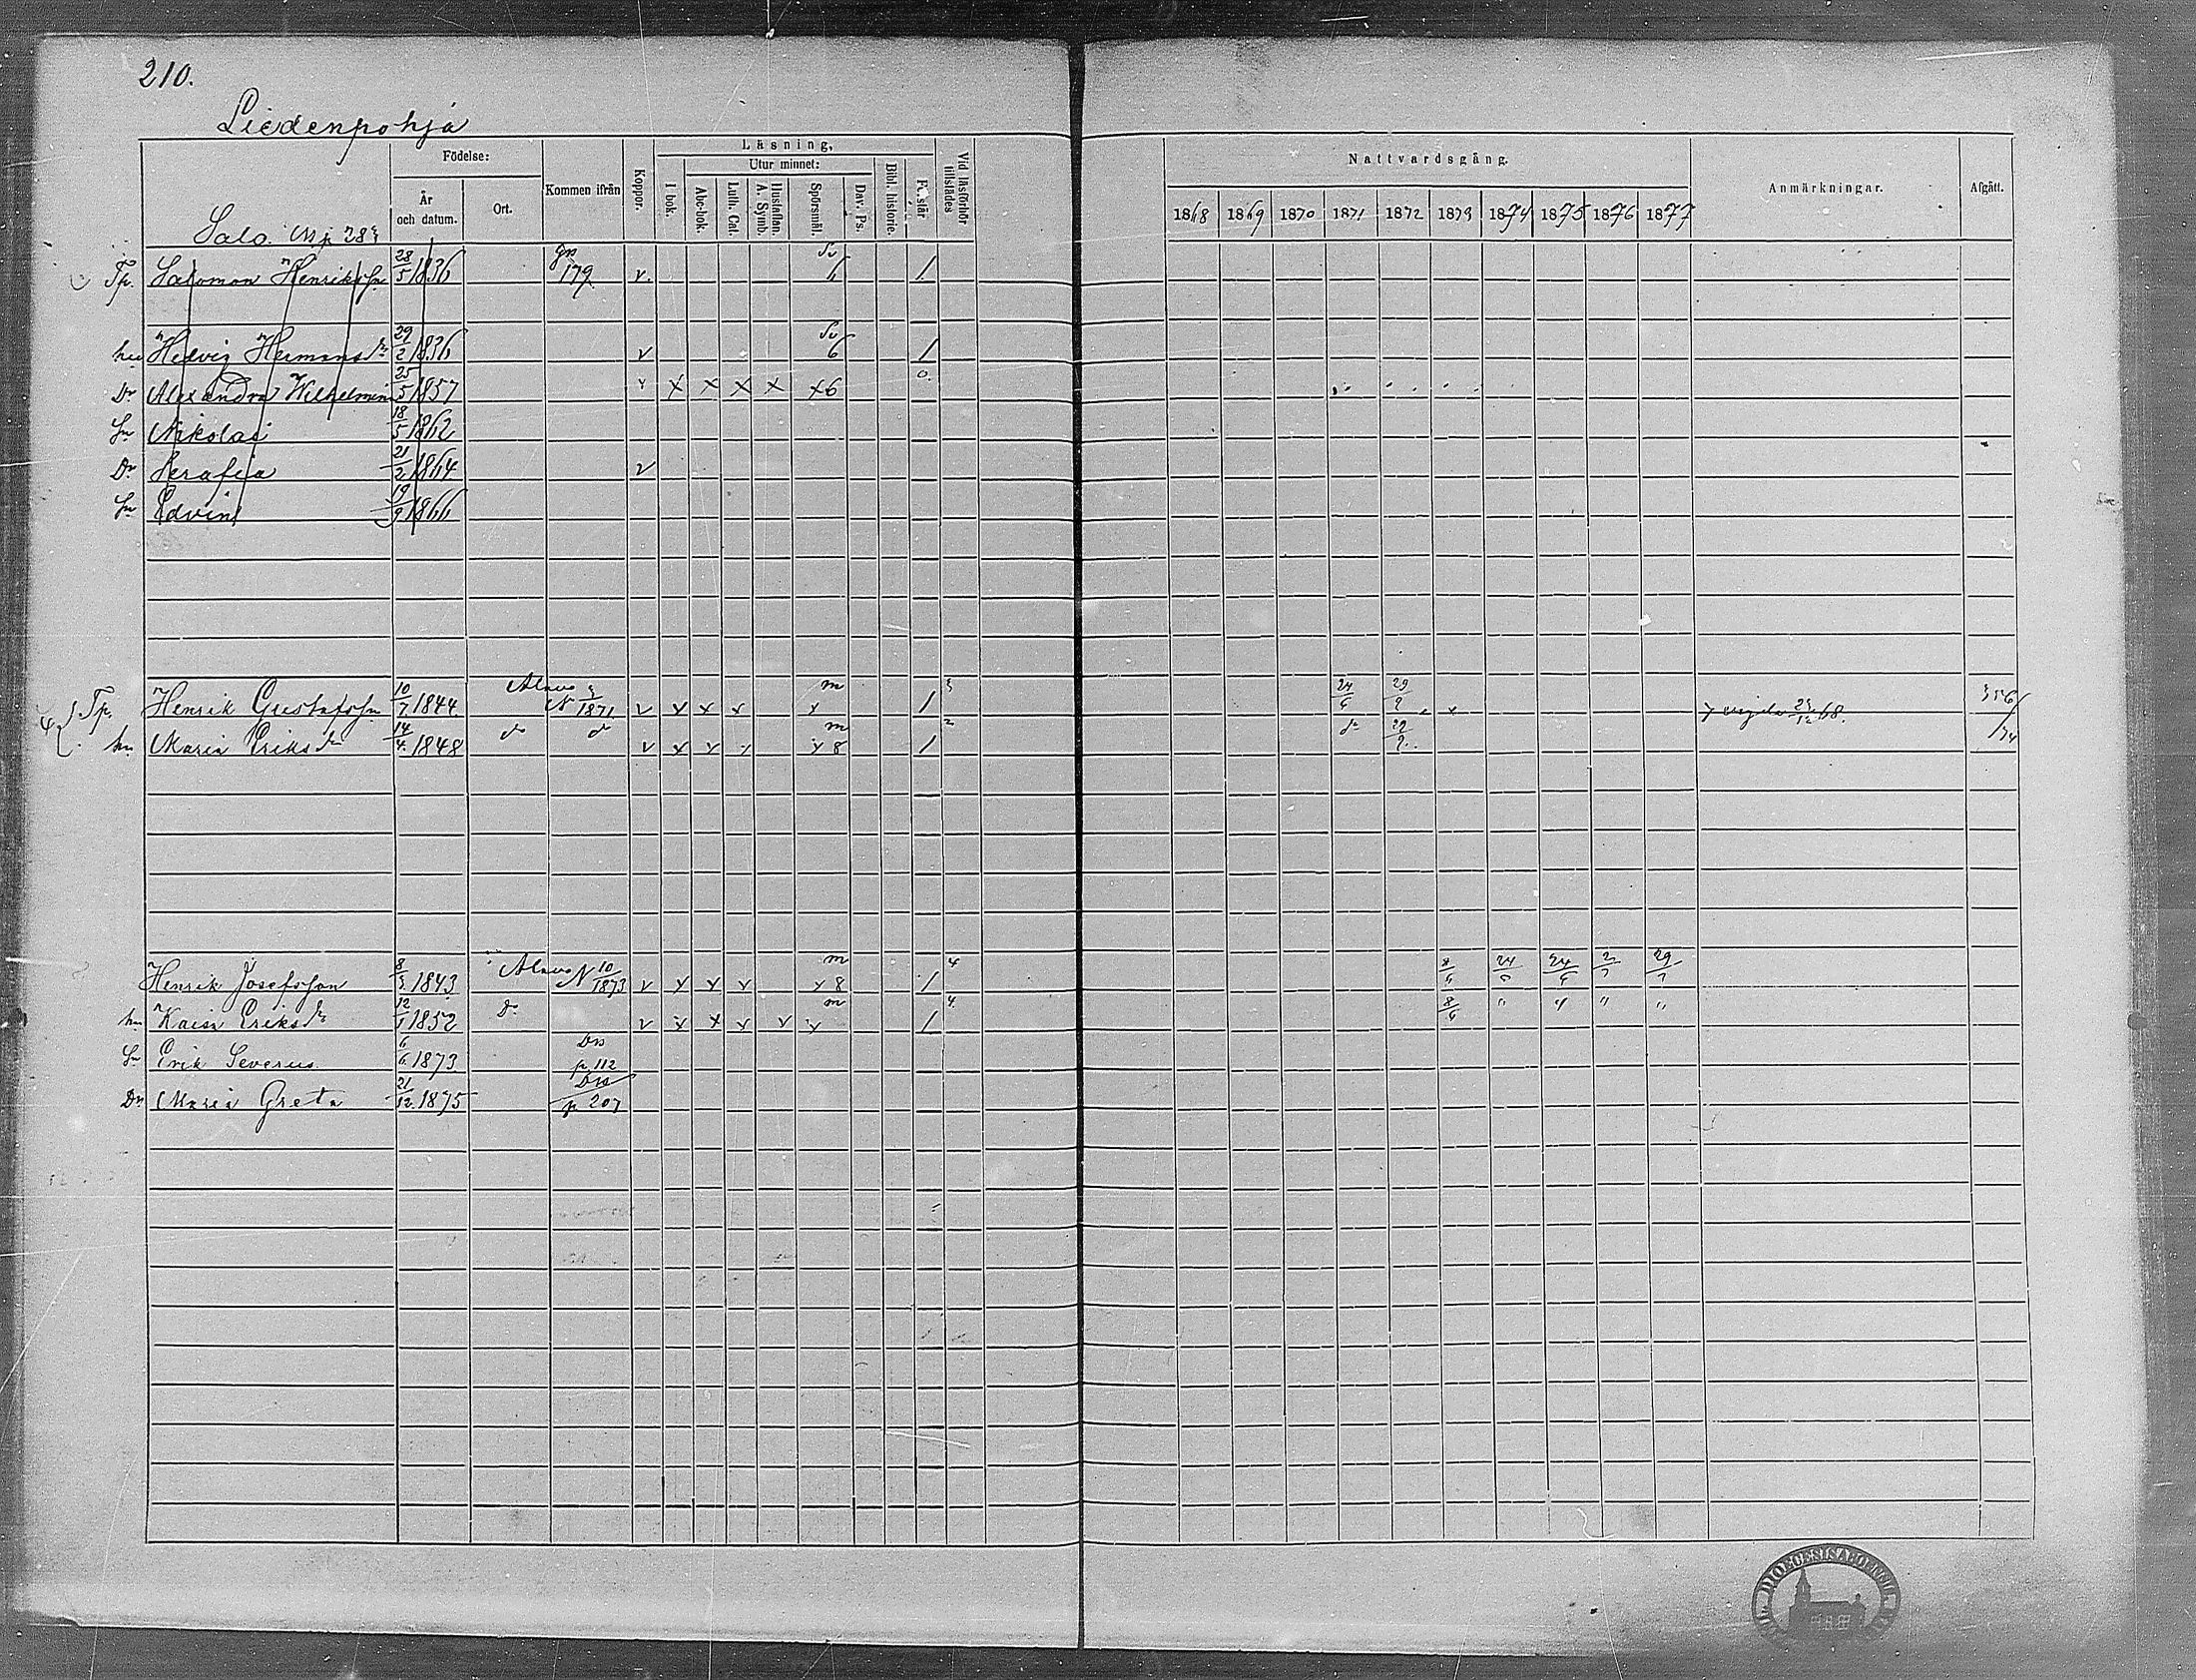 210.
Liedenpohja
Läsning,
Födelse:
Kommen ifrån
Koppor.
Utur minnet:
Vid läsförhör tillstädes
Nattvardsgång.
Anmärkningar.
Afgått.
År och datum.
Ort.
I bok.
Abc-bok.
Luth. Cat.
Hustaflan. A. Symb.
Spörsmål.
Dav. Ps.
Bibl. historie.
1868 1869 1870 1871 1872 1873 1874 1875 1876 1877
Salo.
Tp. Salomon Henrikssn 28/5 1836 179 v. 6 /
hu Hedvig Hermansdr 29/2 1836 v 6 /
Dr Alexandra Wilhelmin 25/5 1857 v x x x x x6 0.
Sn Nikolai 18/5 1862
Dr Serafia 21/2 1864 v
Sn Edvin 19/9 1866
Tp. Henrik Gustafssn 10/7 1844 Alavo 1871 v x x x m x / 3 24/6 29/9 x 23/12 68. 356/74
hu Maria Eriksdr 14/4 1848 do do v x x x m x 8 / 2 do 29/9
Henrik Josefsson 8/3 1843 Alavo N 10/1873 v x x x m x 8 / 4 8/6 24/6
hu Kaisa Eriksdr 12/1 1852 do v x x x x x m / 4 8/6 " " " "
Sn Erik Severus 6/6 1873 Ds p. 112
Dr Maria Greta 21/12 1875 Ds p 207